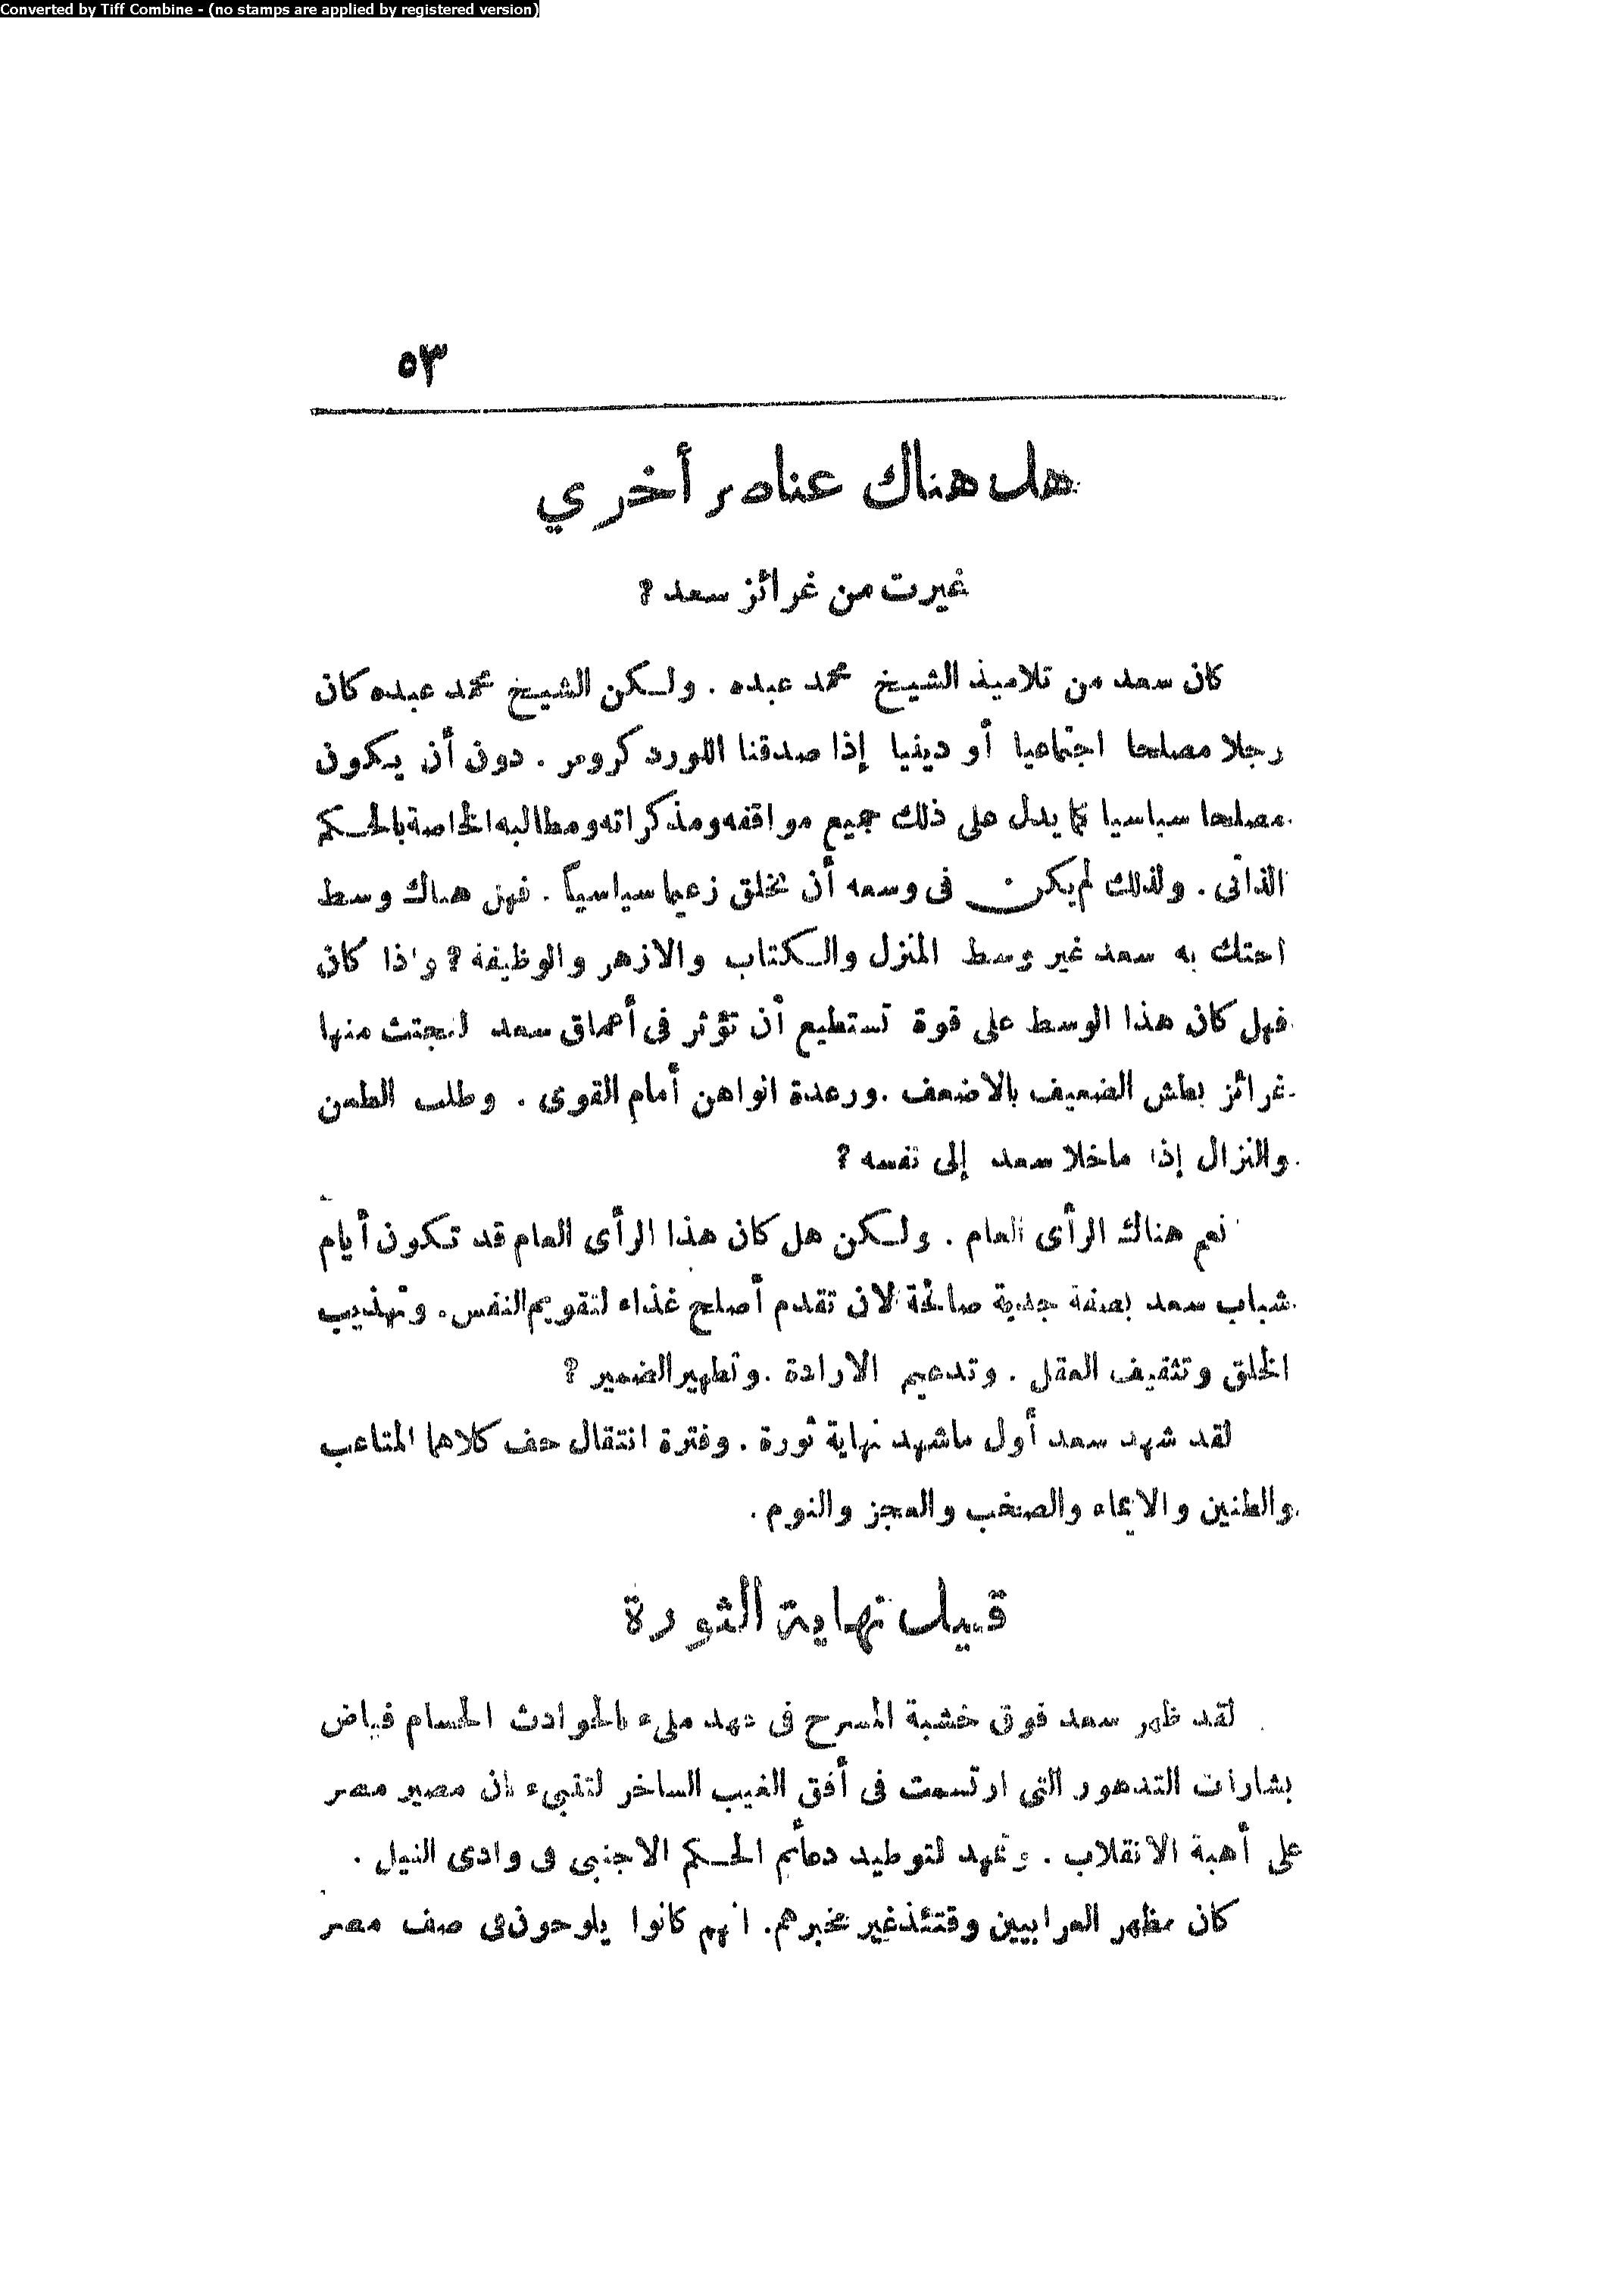 Converted by Tiff Combine - (no stamps are applied by registered version)
٥٣
هل هناك عناصر أخري
غيرت من غرائز سعد ؟
كان سعد من تلاميذ الشيخ محمد عبده . ولكن الشيخ محمد عبده كان
رجلا مصلحا اجتماعيا أو دينيا إذا صدقنا اللورد كرومر . دون أن يكون
مصلحا سياسيا كما يدل على ذلك جميع مواقفه ومذكراته ومطالبه الخاصة بالحكم
الذاتى . ولذلك لم يكن فى وسعه أن يخلق زعيما سياسياً . فهل هناك وسط
احتك به سعد غير وسط المنزل والكتاب والازهر والوظيفة ؟ واذا كان
فهل كان هذا الوسط على قوة تستطيع أن تؤثر فى أعماق سعد لتجتث منها
غرائز بطش الضعيف بالاضعف . ورعدة الواهن أمام القوى . وطلب الطعن
والنزال إذا ماخلا سعد إلى نفسه ؟
نعم هناك الرأى العام . ولكن هل كان هذا الرأى العام قد تكون أيام
شباب سعد بصفة جدية صالحة لان تقدم أصلح غذاء لتقويم النفس . وتهذيب
الخلق وتثقيف العقل . وتدعيم الارادة . وتطهير الضمير ؟
لقد شهد سعد أول ماشهد نهاية ثورة . وفترة انتقال حف كلاهما المتاعب
والطنين والايماء والصخب والعجز والنوم .
قبيل نهاية الثورة
لقد ظهر سعد فوق خشبة المسرح فى عهد ملىء بالحوادث الجسام فياض
بشارات التدهور التى ارتسمت فى أفق الغيب الساخر لتنبىء بان مصير مصر
على أهبة الانقلاب . وتمهد لتوطيد دعائم الحكم الاجنبى فى وادى النيل .
كان مظهر العرابيين وقتئذ غير مخبرهم . انهم كانوا يلوحون فى صف مصر